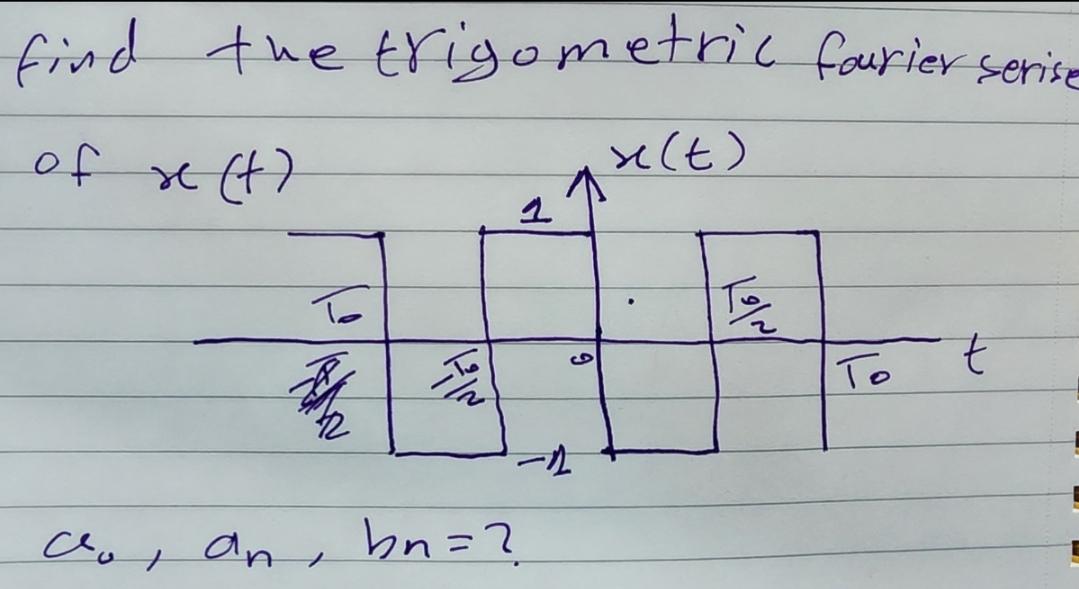 find the trigometric fourier serise
of x(t)
x(t)
1
T₀
T₀/2
-T₀/2
0
T₀
t
-1
a₀, aₙ, bₙ = ?